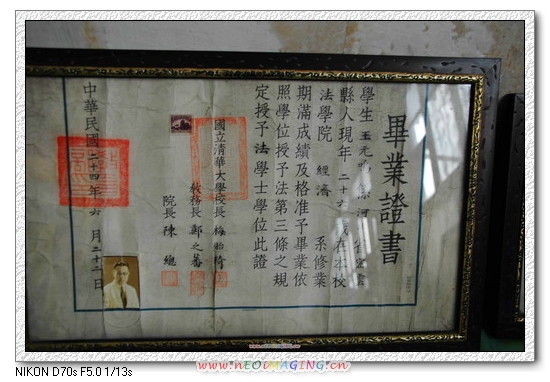 畢業證書
學生王元 係河 省
縣人現年二十六歲在本校
法學院 經濟 系修業
期滿成績及格准予畢業依
照學位授予法第三條之規
定授予法學士學位此證
國立清華大學校長 梅貽琦
教務長 鄭之蕃
院長 陳總
中華民國二十四年六月二十二日
www.neoimaging.cn
NIKON D70s F5.0 1/13s